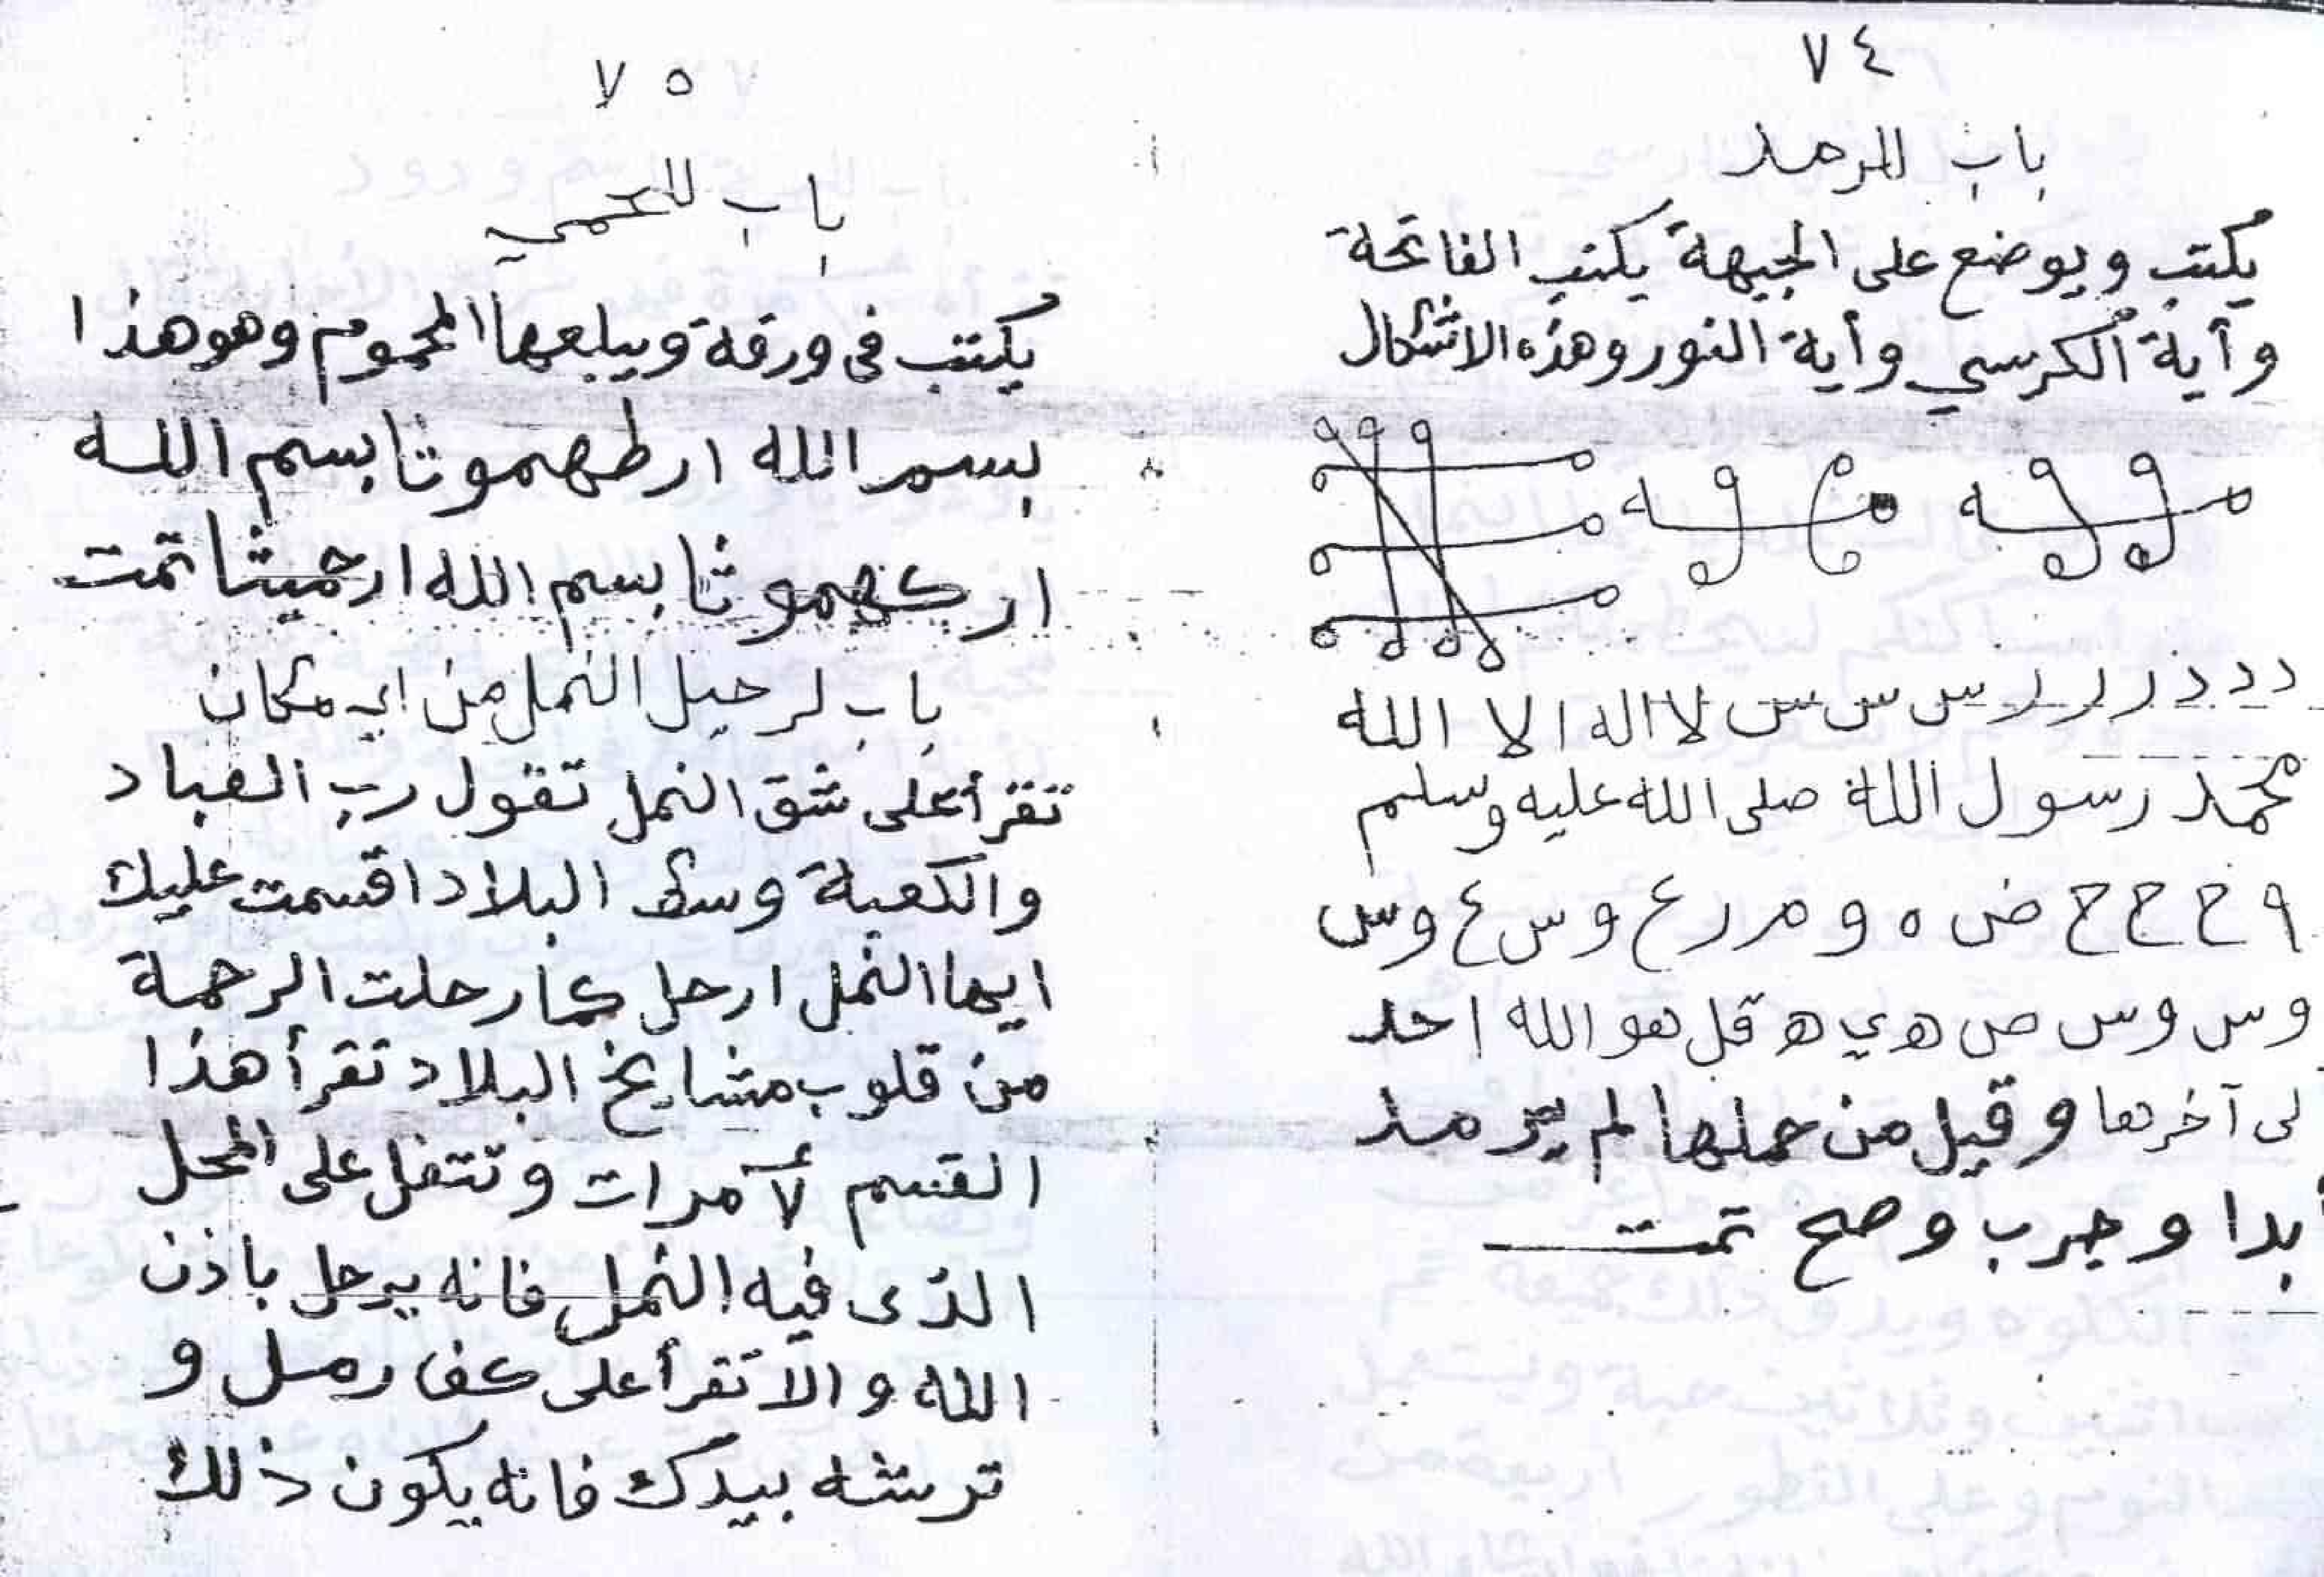 ٧٤
باب للرمد
يكتب ويوضع على الجبهة يكتب الفاتحة
وأية الكرسي وأية النور وهذه الاشكال
د د د ر ر ر س س س لا اله الا الله
محمد رسول الله صلى الله عليه وسلم
٩ ح ح ح ض ٥ و م ر ر ع و س ع و س
و س و س ص ه ي ه قل هو الله احد
لى آخرها وقيل من حملها لم يرمد
أبدا وجرب وصح تمت
٧٥
باب للحمي
يكتب فى ورقة ويبلعها المحموم وهو هذا
بسم الله ارطهموثا بسم الله
اركهموثا بسم الله ارحميثا تمت
باب لرحيل النمل من اي مكان
تقرأ على شق النمل تقول رب العباد
والكعبة وسط البلاد اقسمت عليك
ايها النمل ارحل كما رحلت الرحمة
من قلوب مشايخ البلاد تقرأ هذا
القسم مرات وتتفل على المحل
الذى فيه النمل فانه يرحل باذن
الله والا تقرأ على كف رمل و
ترشه بيدك فانه يكون ذلك